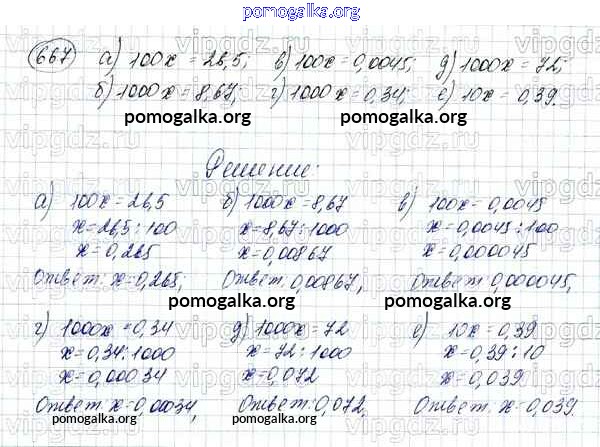 pomogalka.org
667 а) 100x = 26,5; в) 100x = 0,0045; д) 1000x = 72;
б) 1000x = 8,67; г) 1000x = 0,34; е) 10x = 0,39.
pomogalka.org pomogalka.org
Решение:
а) 100x = 26,5 б) 1000x = 8,67 в) 100x = 0,0045
x = 26,5 : 100 x = 8,67 : 1000 x = 0,0045 : 100
x = 0,265 x = 0,00867 x = 0,000045
Ответ: x = 0,265; Ответ: 0,00867, Ответ: 0,000045,
pomogalka.org pomogalka.org
г) 1000x = 0,34 д) 1000x = 72 е) 10x = 0,39
x = 0,34 : 1000 x = 72 : 1000 x = 0,39 : 10
x = 0,00034 x = 0,072 x = 0,039
Ответ: x = 0,00034, Ответ: 0,072, Ответ: x = 0,039.
pomogalka.org pomogalka.org